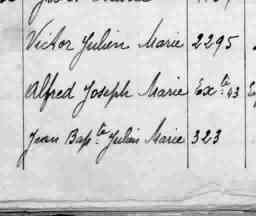 Victor Julien Marie 2295
Alfred Joseph Marie Exte 43
Jean Bapte Julien Marie 323